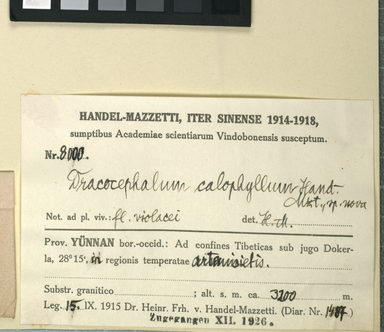 HANDEL-MAZZETTI, ITER SINENSE 1914-1918,
sumptibus Academiae scientiarum Vindobonensis susceptum.
Nr. 8000.
Dracocephalum calophyllum Hand.-
Mzt., sp. nova
Not. ad pl. viv.: fl. violacei det. H.-M.
Prov. YÜNNAN bor.-occid.: Ad confines Tibeticas sub jugo Doker-
la, 28°15', in regionis temperatae
Substr. granitico ; alt. s. m. ca. 3200 m.
Leg. 15. IX. 1915 Dr. Heinr. Frh. v. Handel-Mazzetti. (Diar. Nr.
Zugegangen XII. 1926.